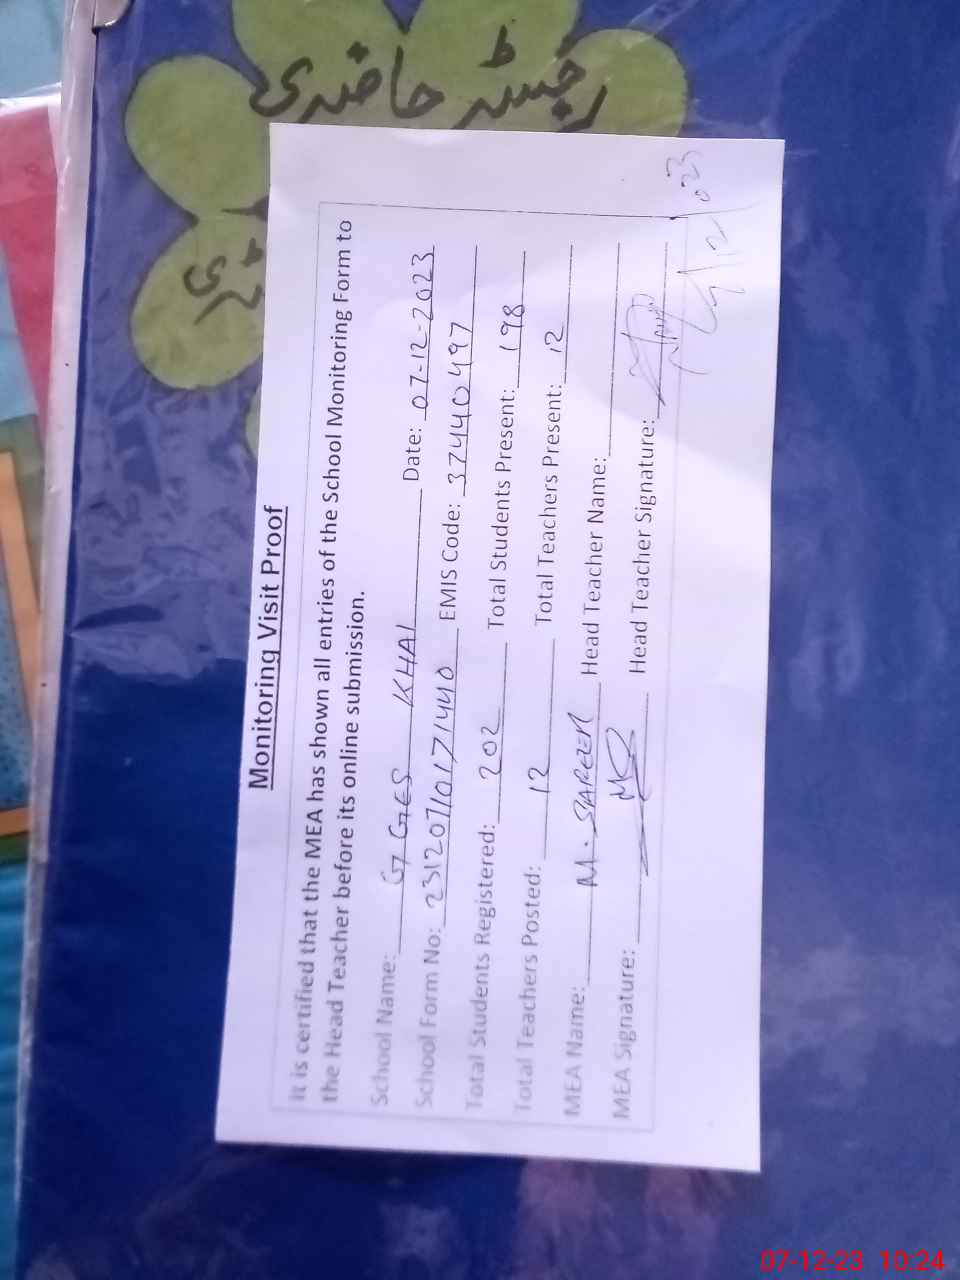 رجسٹر حاضری
Monitoring Visit Proof
It is certified that the MEA has shown all entries of the School Monitoring Form to
the Head Teacher before its online submission.
School Name: GGES KHAI Date: 07-12-2023
School Form No: 23120710171440 EMIS Code: 37440497
Total Students Registered: 202 Total Students Present: 198
Total Teachers Posted: 12 Total Teachers Present: 12
MEA Name: M. SAREER Head Teacher Name:
MEA Signature: Head Teacher Signature:
07-12-23 10:24